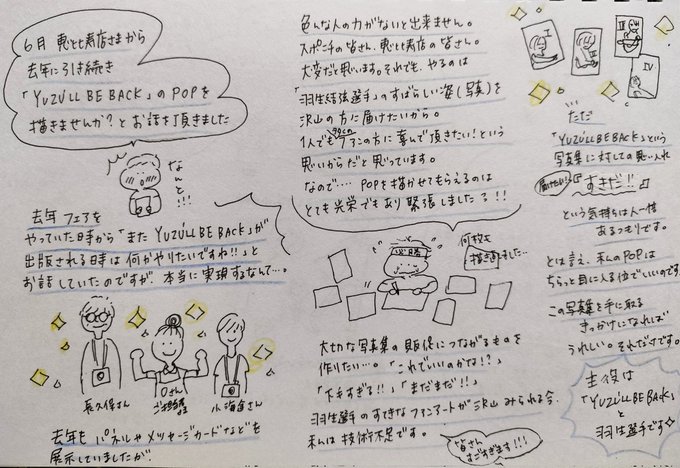 6月 恵比寿店さまから
去年に引き続き
「YUZU'LL BE BACK」のPOPを
描きませんか?とお話を頂きました
なんと!!!
去年フェアを
やっていた時から「また YUZU'LL BE BACKが
出版される時は何かやりたいですね!!」と
お話していたのですが 本当に実現するなんて…。
長久保さん
Oさん
ご担当
小海途さん
去年も パネルやメッセージカードなどを
展示していましたが
色んな人の力がないと出来ません。
スポニチの皆さん、恵比寿店の皆さん。
大変だと思います。それでも、やるのは
「羽生結弦選手」のすばらしい姿(写真)を
沢山の方に届けたいから。
1人でもファンの方に喜んで頂きたい!という
思いからだと思っています。
なので…. POPを描かせてもらえるのは
とても光栄でもあり緊張しましたる!!
必勝
何枚も
描き直しました…
大切な写真集の販促につながるものを
作りたい…。「これでいいのかな!?」
「下手すぎる!!」「まだまだ!!」
羽生選手のすてきなファンアートが沢山みられる今、
私は技術不足です。
皆さん
すごすぎます!!!
I
II
III
IV
ただ
「YUZU'LL BE BACK」という
写真集に対しての思い入れ
届けたい!
『すきだ!!』
という気持ちは人一倍
あるつもりです。
とは言え、私のPOPは
ちらっと目に入る位でいいのです。
この写真集を手に取る
きっかけになれば
うれしい。それだけです。
主役は
「YUZU'LL BE BACK」
と
羽生選手です